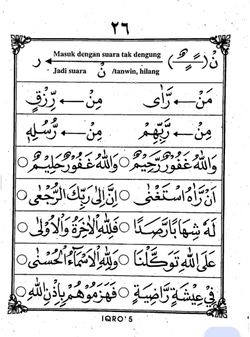 ٢٦
نْ (ـًــٍــٌ) ← Masuk dengan suara tak dengung ← ر
Jadi suara نْ /tanwin, hilang
مَنْ ← رَّاٰى مِنْ ← رِّزْقٍ
مِنْ ← رَّبِّهِمْ مِنْ ← رُّسُلِهٖ
وَاللّٰهُ غَفُوْرٌ رَّحِيْمٌ ○ وَاللّٰهُ غَفُوْرٌ حَلِيْمٌ ○
اَنْ رَّاٰهُ اسْتَغْنٰى ○ اِنَّ اِلٰى رَبِّكَ الرُّجْعٰى ○
لَهٗ شِهَابًا رَّصَدًا ○ فَلِلّٰهِ الْاٰخِرَةُ وَالْاُوْلٰى ○
عَلَى اللّٰهِ تَوَكَّلْنَا ○ وَلِلّٰهِ الْاَسْمَآءُ الْحُسْنٰى ○
فِيْ عِيْشَةٍ رَّاضِيَةٍ ○ فَهَزَمُوْهُمْ بِاِذْنِ اللّٰهِ ○
IQRO' 5